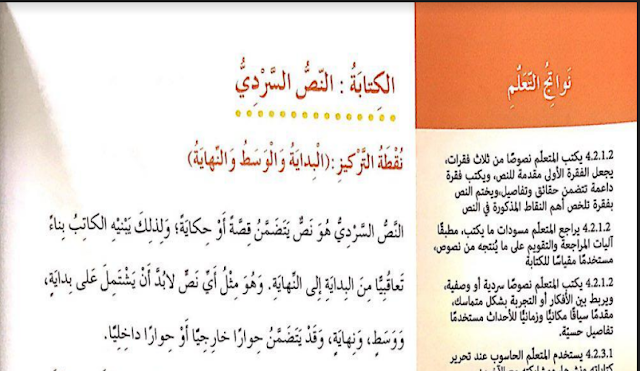 الكِتابَةُ : النّصُّ السَّرْدِيُّ
نُقْطَةُ التَّرْكيزِ :(الْبِدايَةُ وَالْوَسَطُ وَالنِّهايَةُ)
النَّصُّ السَّرْدِيُّ هُوَ نَصٌّ يَتَضَمَّنُ قِصَّةً أَوْ حِكايَةً؛ وَلِذلِكَ يَبْنيْهِ الكاتِبُ بِناءً
تَعاقُبِيًّا مِنَ البِدايَةِ إلى النِّهايَةِ. وَهُوَ مِثْلُ أَيِّ نَصٍّ لابُدَّ أَنْ يَشْتَمِلَ عَلى بِدايَةٍ،
وَوَسَطٍ، وَنِهايَةٍ، وَقَدْ يَتَضَمَّنُ حِوارًا خارِجِيًّا أَوْ حِوارًا داخِلِيًّا.
نَواتِجُ التَّعَلُّمِ
4.2.1.2 يكتب المتعلّم نصوصًا من ثلاث فقرات،
يجعل الفقرة الأولى مقدمة للنص، ويكتب فقرة
داعمة تتضمن حقائق وتفاصيل،ويختم النص
بفقرة تلخص أهم النقاط المذكورة في النص
4.2.1.2 يراجع المتعلّم مسودات ما يكتب، مطبقًا
آليات المراجعة والتقويم على ما يُنتجه من نصوص،
مستخدمًا مقياسًا للكتابة
4.2.1.2 يكتب المتعلّم نصوصًا سردية أو وصفية،
ويربط بين الأفكار أو التجربة بشكل متماسك،
مقدمًا سياقًا مكانيًّا وزمانيًّا للأحداث مستخدمًا
تفاصيل حسيّة.
4.2.3.1 يستخدم المتعلّم الحاسوب عند تحرير